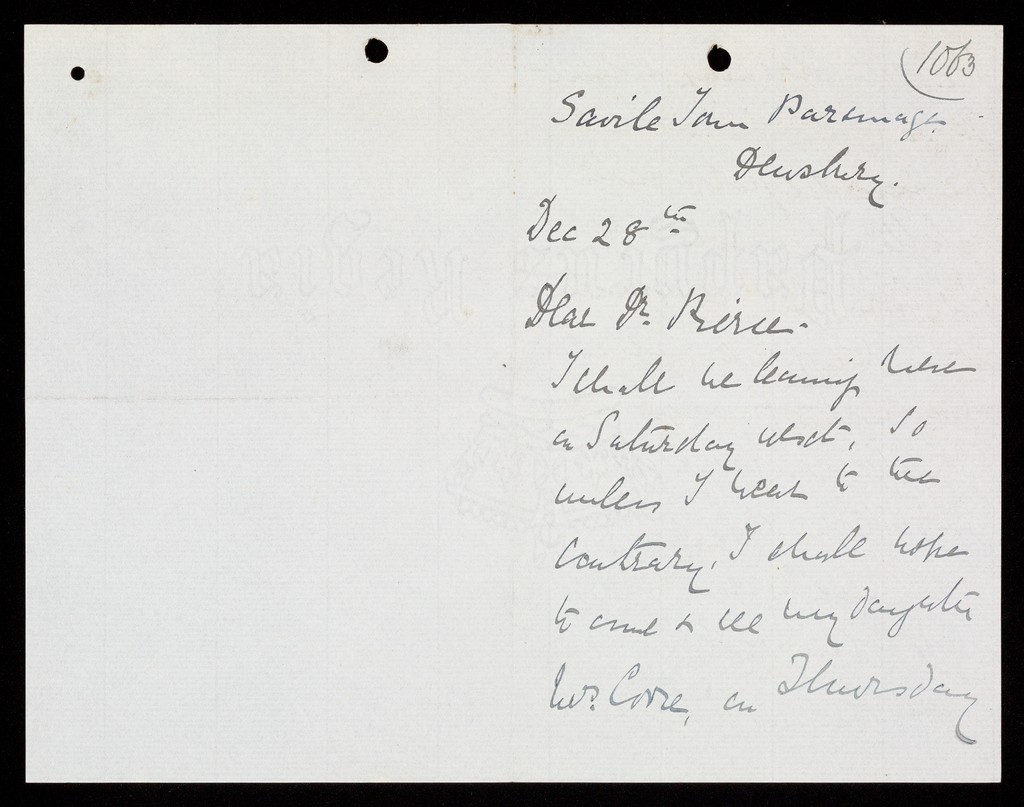 1063
Savile Town Parsonage.
Dewsbury.
Dec 28th
Dear Dr. Pierce.
I shall be leaving here
on Saturday next, so
unless I hear to the
contrary, I shall hope
to come & see my daughter
Mrs. Corre, on Thursday